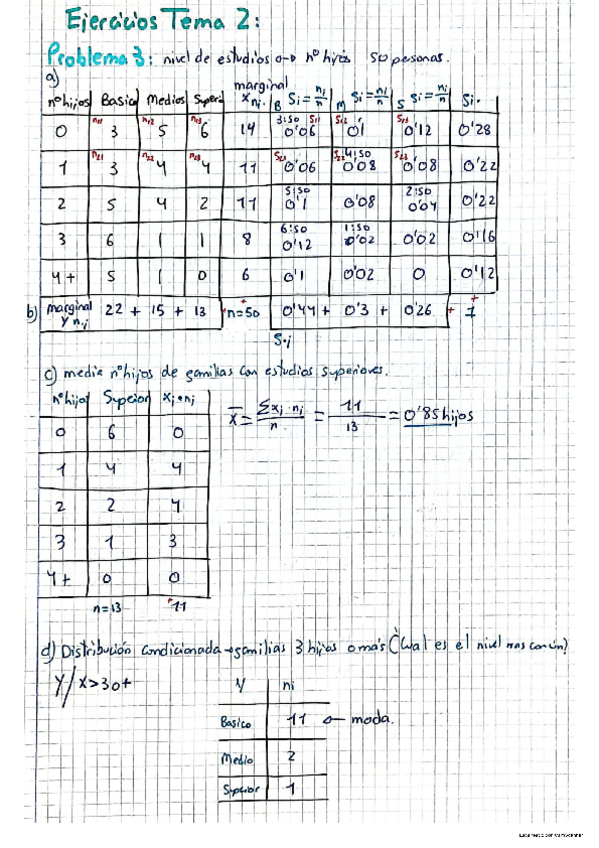 Ejercicios Tema 2:
Problema 3: nivel de estudios o-o nº hijos 50 personas.
a)
nº hijos Basica Medios Superi marginal X ni. B Si = ni/n M Si = ni/n S Si = ni/n Si.
0 n11 3 n12 5 n13 6 14 3:50 S11 0'06 S12 0'1 S13 0'12 0'28
1 n21 3 n22 4 n23 4 11 S21 0'06 S22 4:50 0'08 S23 0'08 0'22
2 5 4 2 11 5:50 0'1 0'08 2:50 0'04 0'22
3 6 1 1 8 6:50 0'12 1:50 0'02 0'02 0'16
4+ 5 1 0 6 0'1 0'02 0 0'12
b) marginal Y n.j 22 + 15 + 13 n=50 0'44 + 0'3 + 0'26 + 1
S.j
c) media nº hijos de familias con estudios superiores.
nº hijos Superior xi • ni
0 6 0
1 4 4
2 2 4
3 1 3
4+ 0 0
n=13 +11
x̄ = Σxi·ni/n = 11/13 = 0'85 hijos
d) Distribución condicionada → familias 3 hijos o más ¿Cual es el nivel mas común?
Y/X>3 o +
Y ni
Basico 11 o- moda.
Medio 2
Superior 1